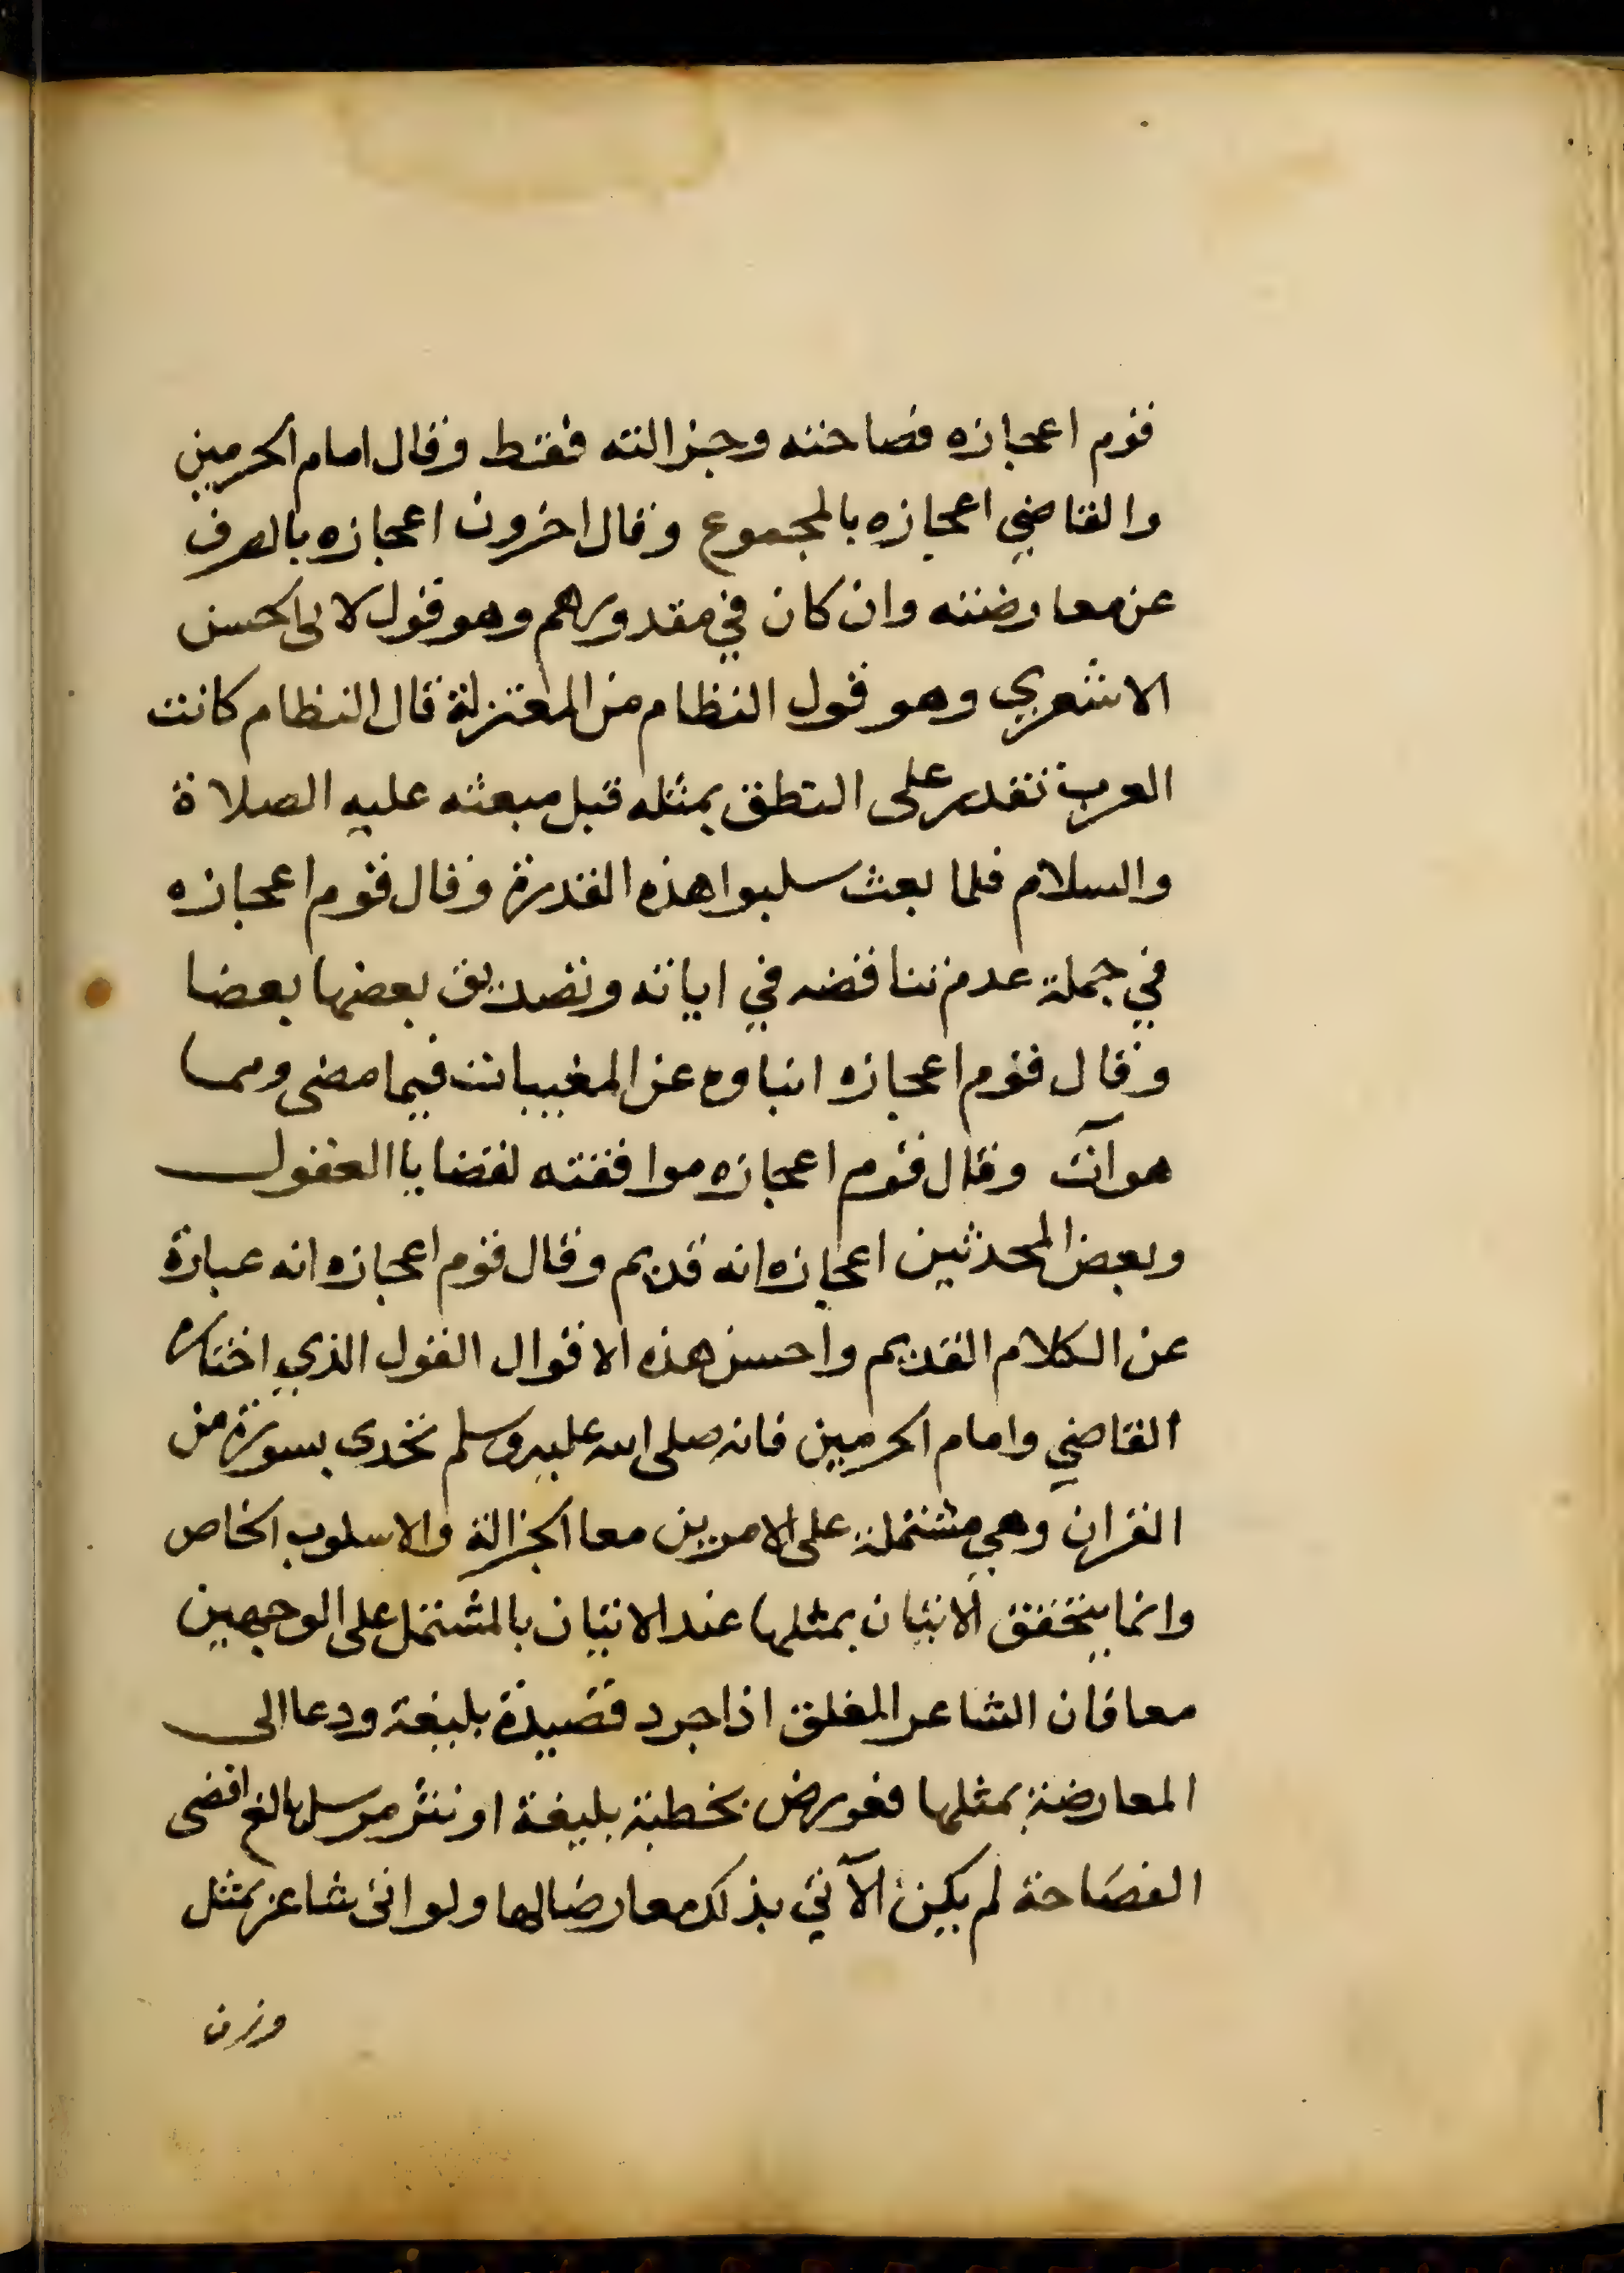 قوم اعجازه فصاحته وجزالته فقط وقال امام الحرمين
والقاضي اعجازه بالمجموع وقال اخرون اعجازه بالصرف
عن معارضته وان كان في مقدورهم وهو قول لابي الحسن
الاشعري وهو قول النظام من المعتزلة قال النظام كانت
العرب تقدر على النطق بمثله قبل مبعثه عليه الصلاة
والسلام فلما بعث سلبوا هذه القدرة وقال قوم اعجازه
في جملة عدم تناقضه في اياته وتصديق بعضها بعضا
وقال قوم اعجازه انباوه عن المغيبات فيما مضى ومما
هو آت وقال قوم اعجازه موافقته لقضايا العقول
وبعض المحدثين اعجازه انه قديم وقال قوم اعجازه انه عبارة
عن الكلام القديم واحسن هذه الاقوال القول الذي اختاره
القاضي وامام الحرمين فانه صلى الله عليه وسلم تحدى بسورة من
القران وهي مشتملة على الامرين معا الجزالة والاسلوب الخاص
وانما يتحقق الاتيان بمثلها عند الاتيان بالمشتمل على الوجهين
معا فان الشاعر المفلق اذا جرد قصيدة بليغة ودعا الى
المعارضة بمثلها فعورض بخطبة بليغة او نثر مرسل بالغ اقصى
الفصاحة لم يكن الآتي بذلك معارضا لها ولو اتى شاعر بمثل
وزن